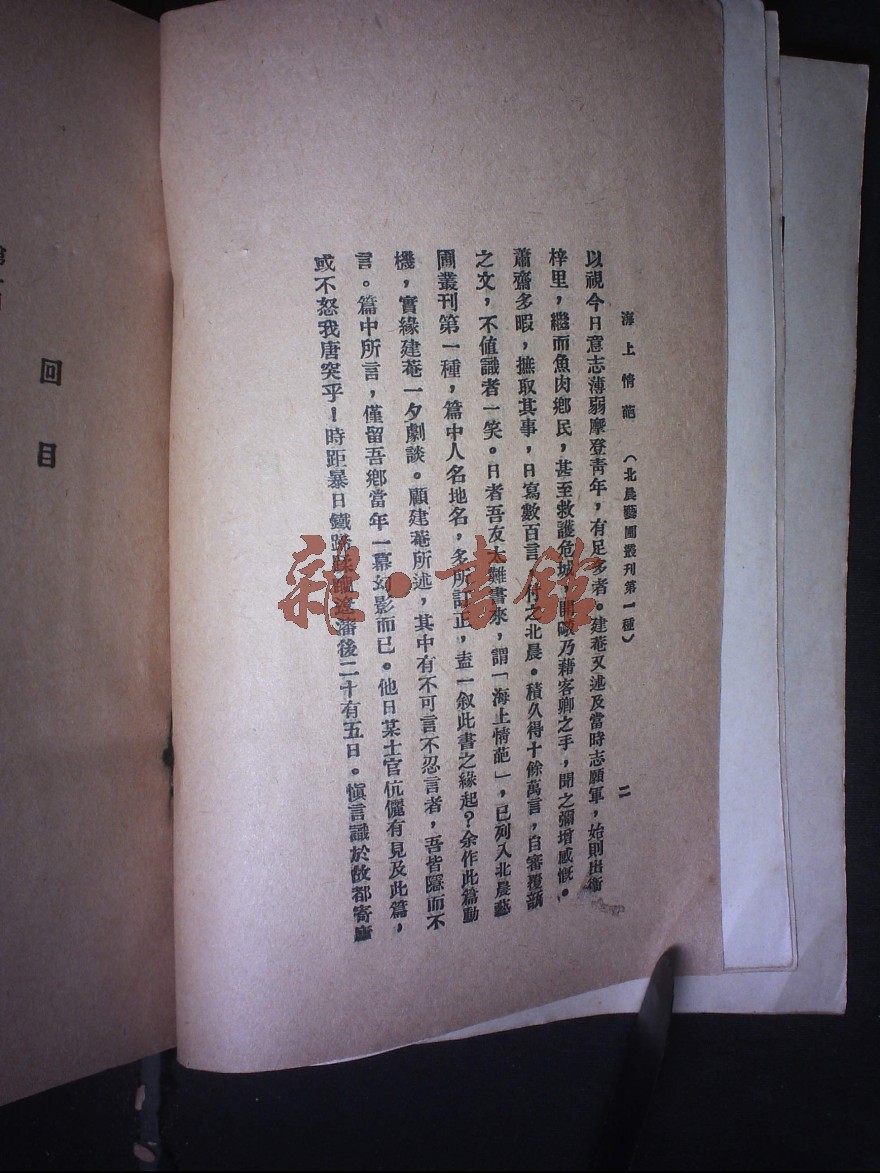 海上情葩　（北晨藝圃叢刊第一種）　二
以視今日意志薄弱摩登靑年，有足多者。建菴又述及當時志願軍，始則出衞
梓里，繼而魚肉鄕民，甚至救護危城，乃藉客卿之手，聞之彌增感慨。
蕭齋多暇，摭取其事，日寫數百言，付之北晨。積久得十餘萬言，自審覆瓿
之文，不値識者一笑。日者吾友大難書來，謂「海上情葩」，已列入北晨藝
圃叢刊第一種，篇中人名地名，多所訂正，盍一叙此書之緣起？余作此篇動
機，實緣建菴一夕劇談。顧建菴所述，其中有不可言不忍言者，吾皆隱而不
言。篇中所言，僅留吾鄕當年一幕幻影而已。他日某士官伉儷有見及此篇，
或不怒我唐突乎！時距暴日鐵蹄蹂躪遼瀋後二十有五日。愼言識於故都寄廬
回目
雜·書館